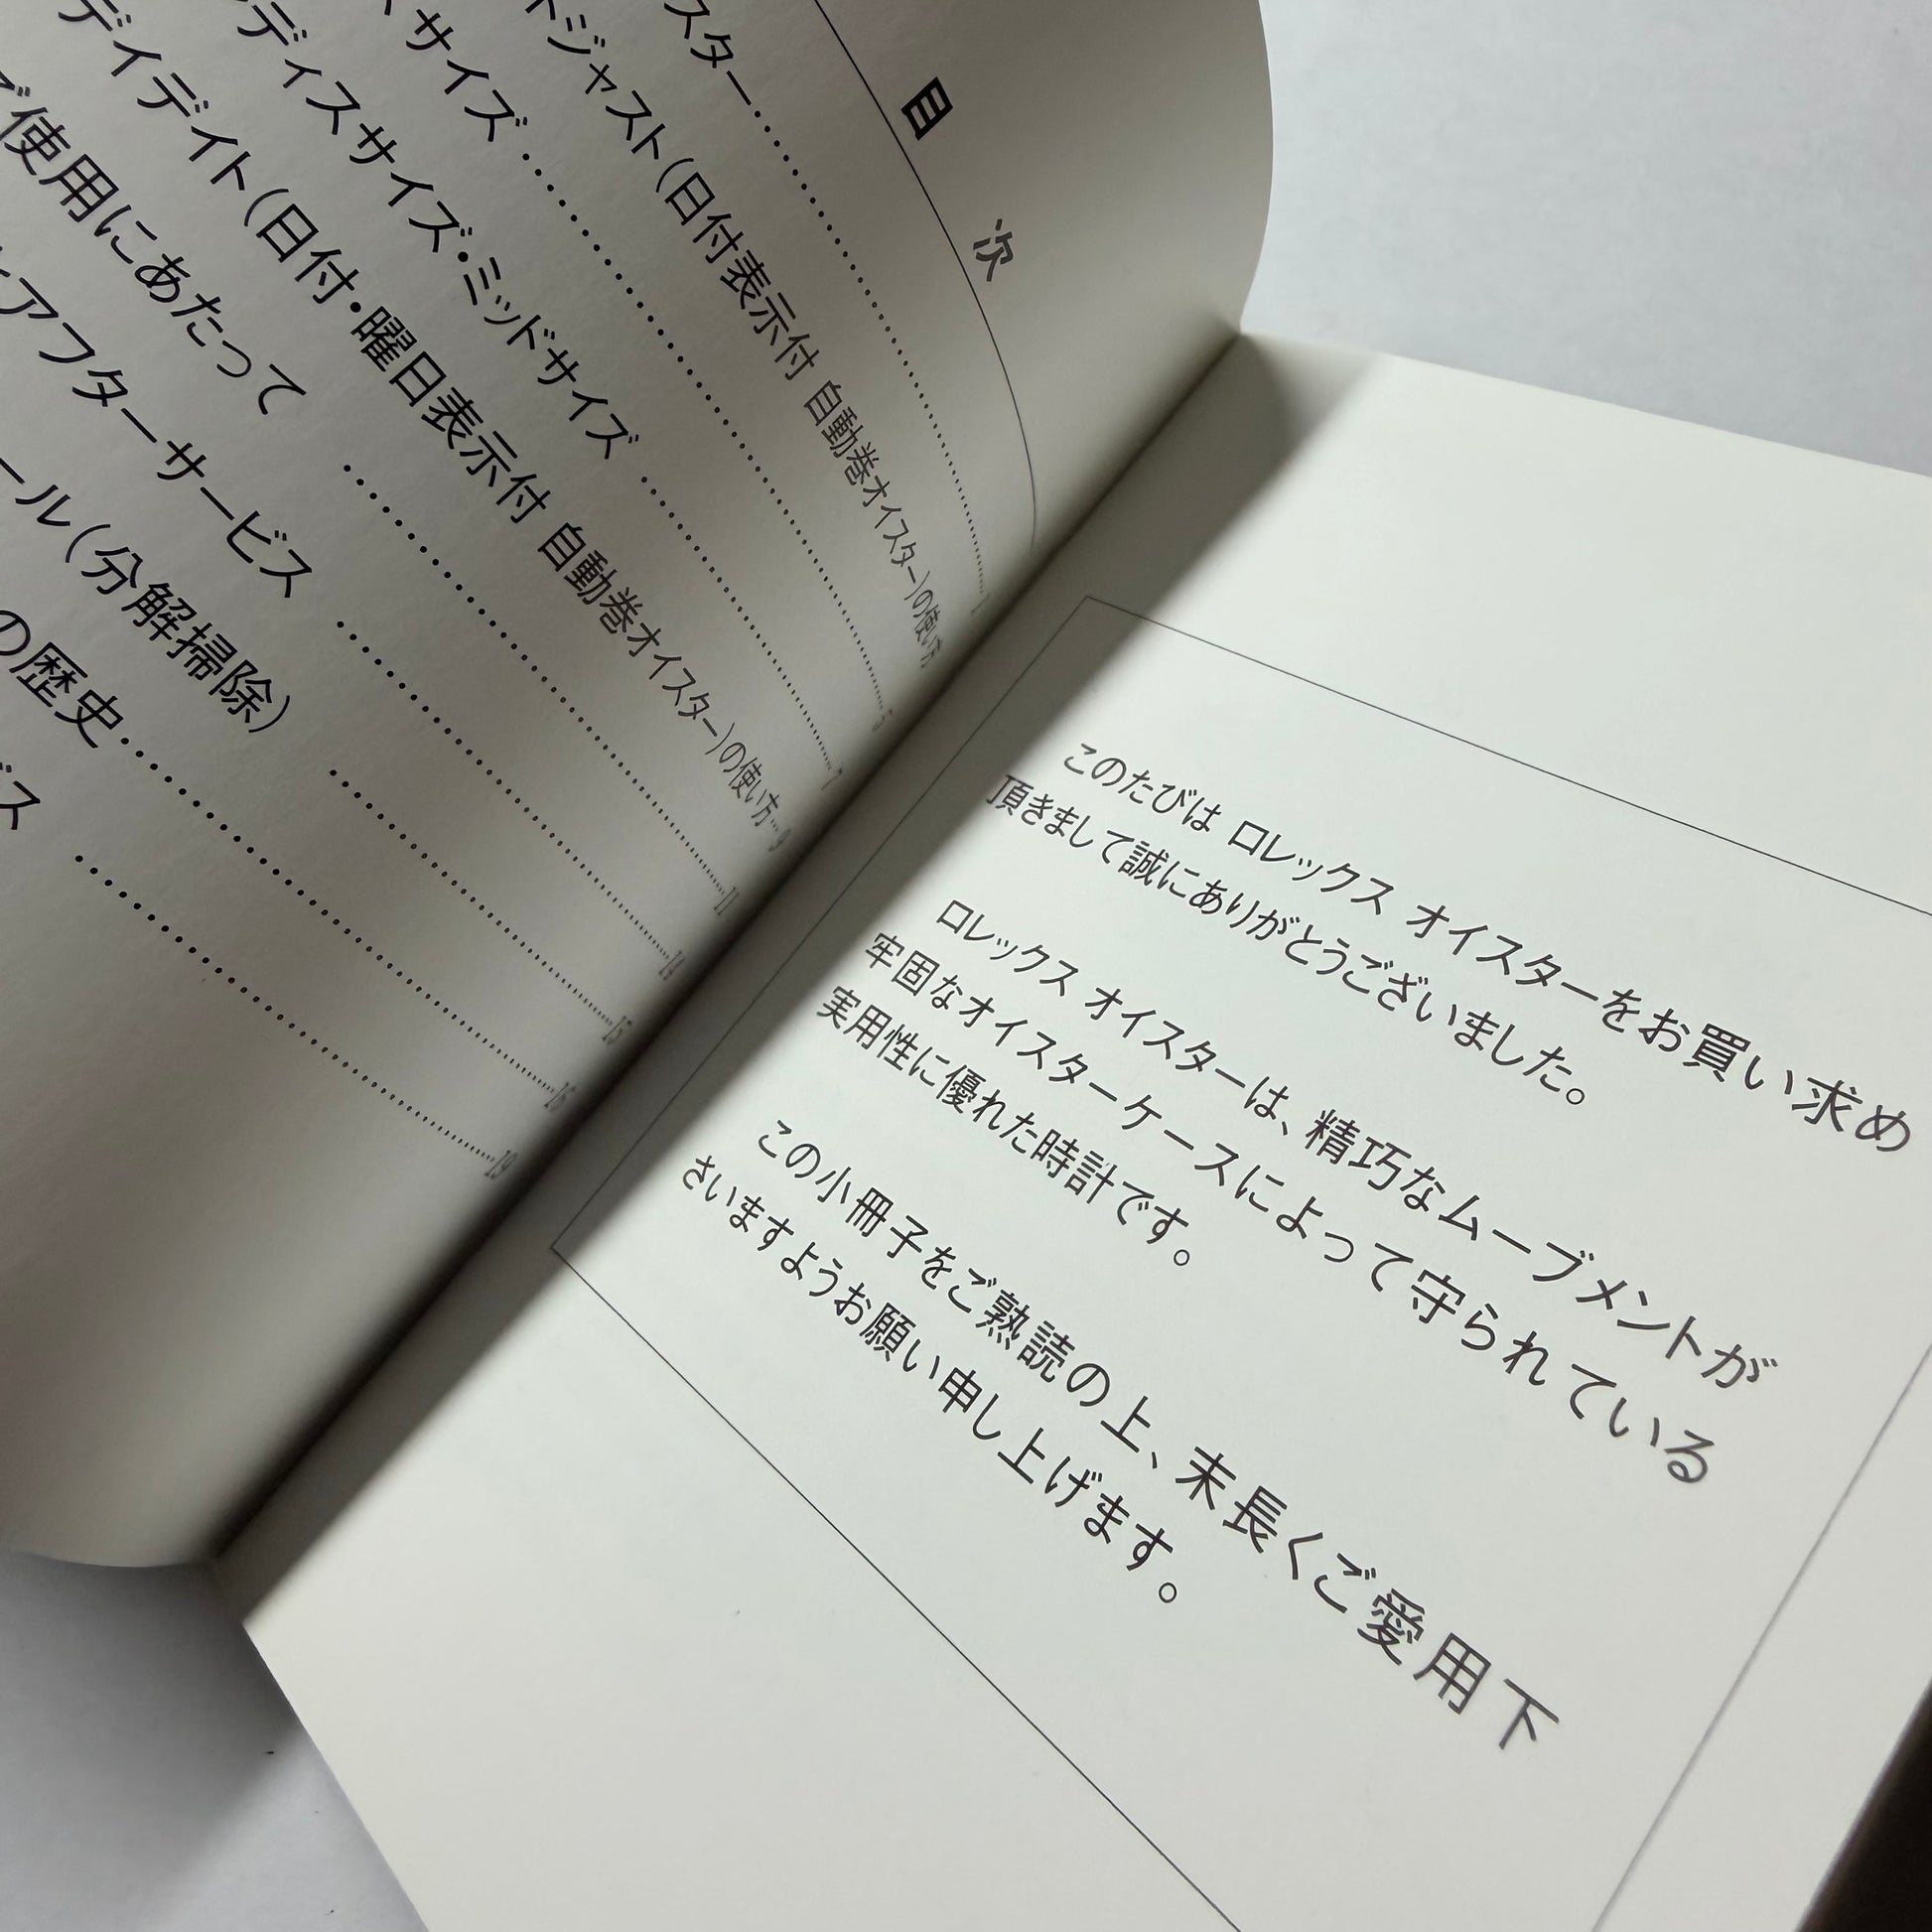 目 次
スター 1
トジャスト(日付表示付 自動巻オイスター)の使い方
サイズ 5
ディスサイズ・ミッドサイズ 7
デイデイト(日付・曜日表示付 自動巻オイスター)の使い方 9
ご使用にあたって 11
とアフターサービス 14
ール(分解掃除) 15
の歴史 16
ビス 19
このたびは ロレックス オイスターをお買い求め
頂きまして誠にありがとうございました。
ロレックス オイスターは、精巧なムーブメントが
牢固なオイスターケースによって守られている
実用性に優れた時計です。
この小冊子をご熟読の上、末長くご愛用下
さいますようお願い申し上げます。